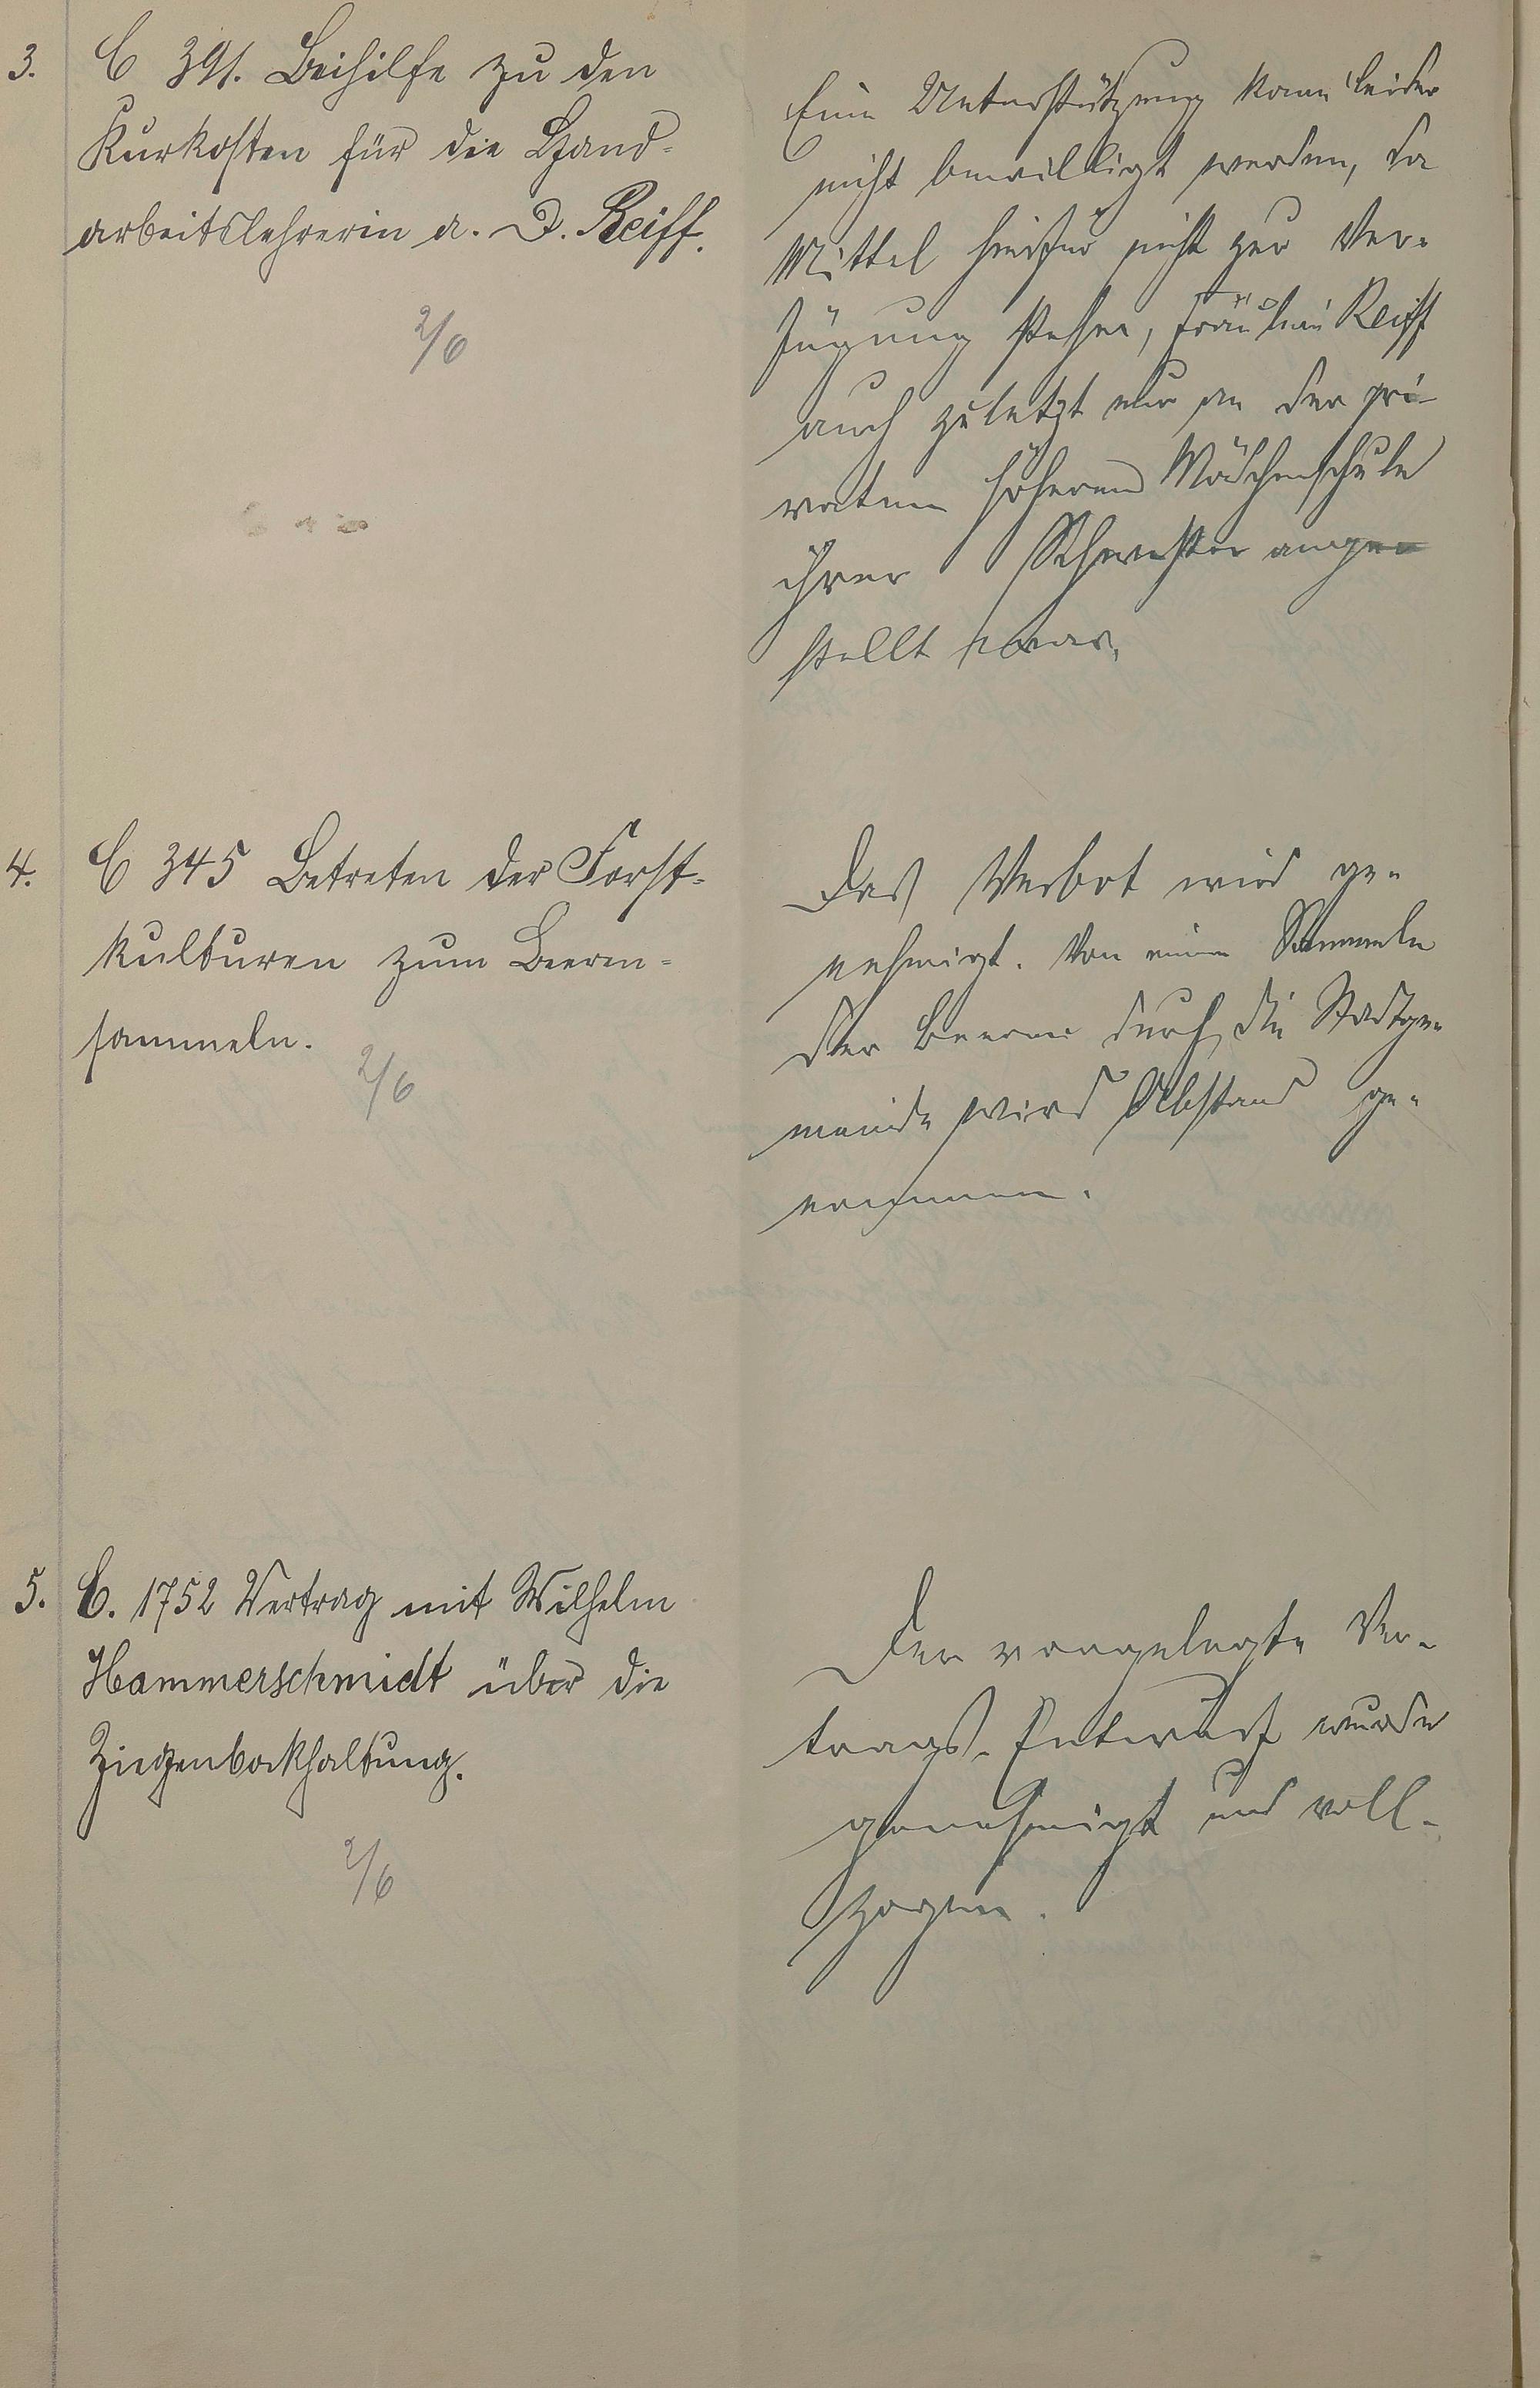 3.
C 391. Beihilfe zu den
Kurkosten für die Hand-
arbeitslehrerin a. D. Reiff.
2/6
Eine Unterstützung kann leider
nicht bewilligt werden, da
Mittel hierfür nicht zur Ver-
fügung stehen, Fräulein Reiff
auch zuletzt nur an der pri-
vaten höheren Mädchenschule
ihrer Schwester ange-
stellt war.
4.
C 345 Betreten der Forst-
kulturen zum Beeren-
sammeln.
2/6
Das Verbot wird ge-
nehmigt. Von einem Sammeln
der Beeren durch die Stadtge-
meinde wird Abstand ge-
nommen.
5.
C. 1752 Vertrag mit Wilhelm
Hammerschmidt über die
Ziegenbockhaltung.
2/6
Der vorgelegte Ver-
trags-Entwurf wurde
genehmigt und voll-
zogen.